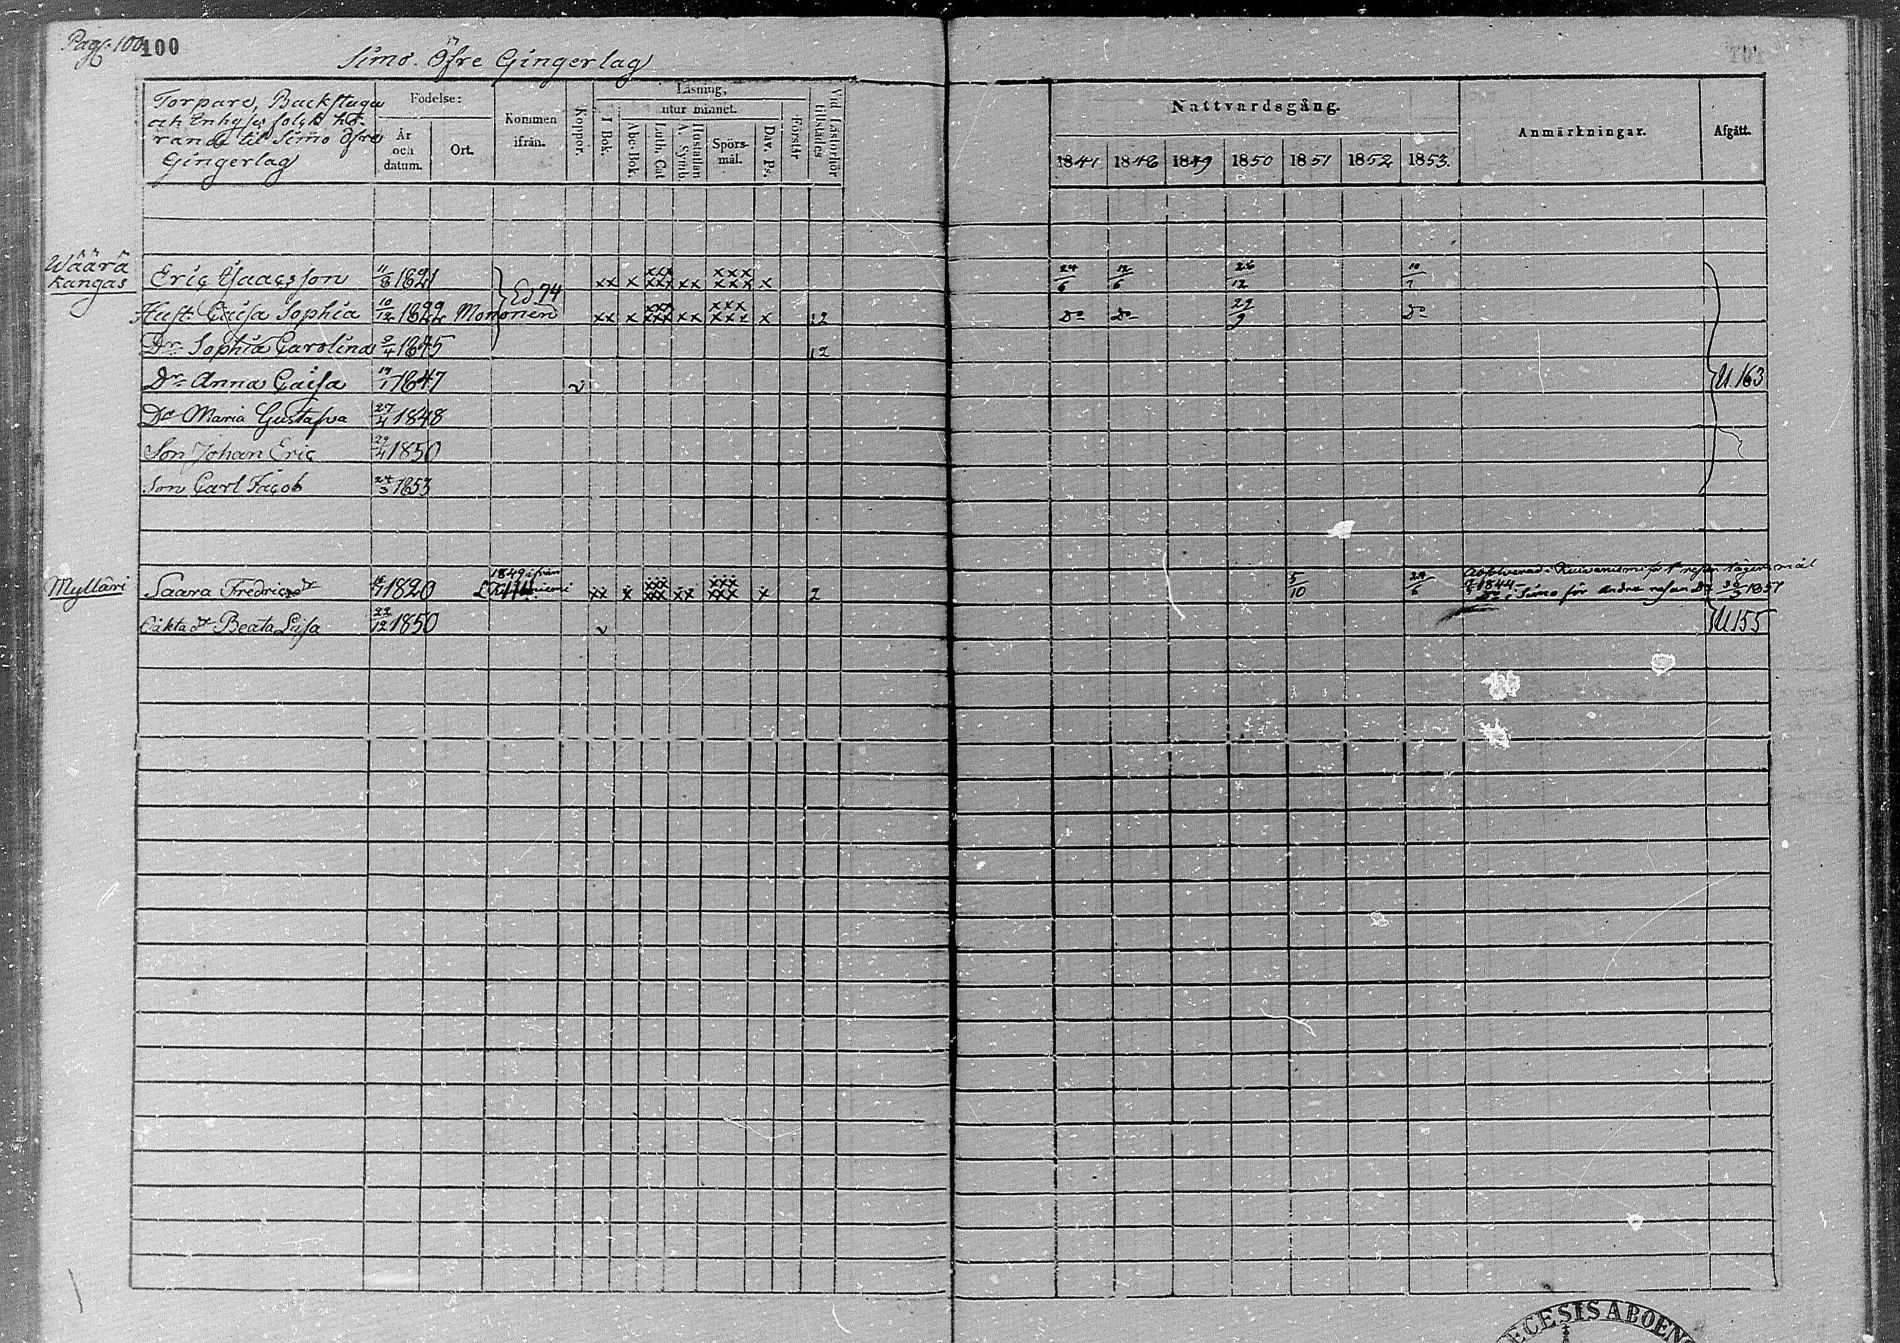 Pag. 100
100
Simo. Öfre Gingerlag
Torpare, Backstugu
och Enhyses folck hö-
rande til Simo Öfre
Gingerlag
Födelse:
År
och
datum.
Ort.
Kommen
ifrån.
Koppor.
Läsning,
utur minnet.
I Bok.
Abc-Bok.
Luth. Cat
A. Symb.
Hustaflan
Spörs-
mål.
Dav. Ps.
Förstår
Vid Läsförhör
tillstädes
Nattvardsgång.
1841 1846 1849 1850 1851 1852 1853.
Anmärkningar.
Afgått.
Wäärä
kangas
Eric Isacsson 11/8 1821 xx x xxx xxx xx xxx xxx x 24/6 12/6 26/12 10/7
Ed 74
Hust. Caisa Sophia 10/12 1822 Mononen xx x xxx xxx xx xxx xxx x 12 Do Do 29/9 Do
Dr Sophia Carolina 9/4 1845 12
Dr Anna Caisa 19/1 1847 v U. 163
Dr Maria Gustafva 27/4 1848
Son Johan Eric 29/4 1850
Son Carl Jacob 24/3 1853
Mylläri
1849 ifrån
Saara Fredricsdr 1820 xx x xxx xxx xx xxx xxx x 2 5/10 29/6
1844
i Simo för andra resan 1851
Oäkta dr Beata Lisa 22/12 1850 v U 155
ECESIS ABOEN